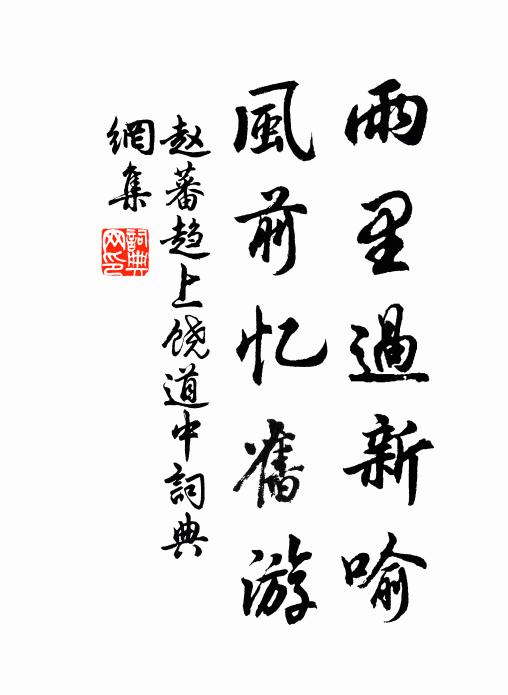 雨里過新喻
風前忆舊游
赵蕃趋上饶道中詞典
網集
詞典网印